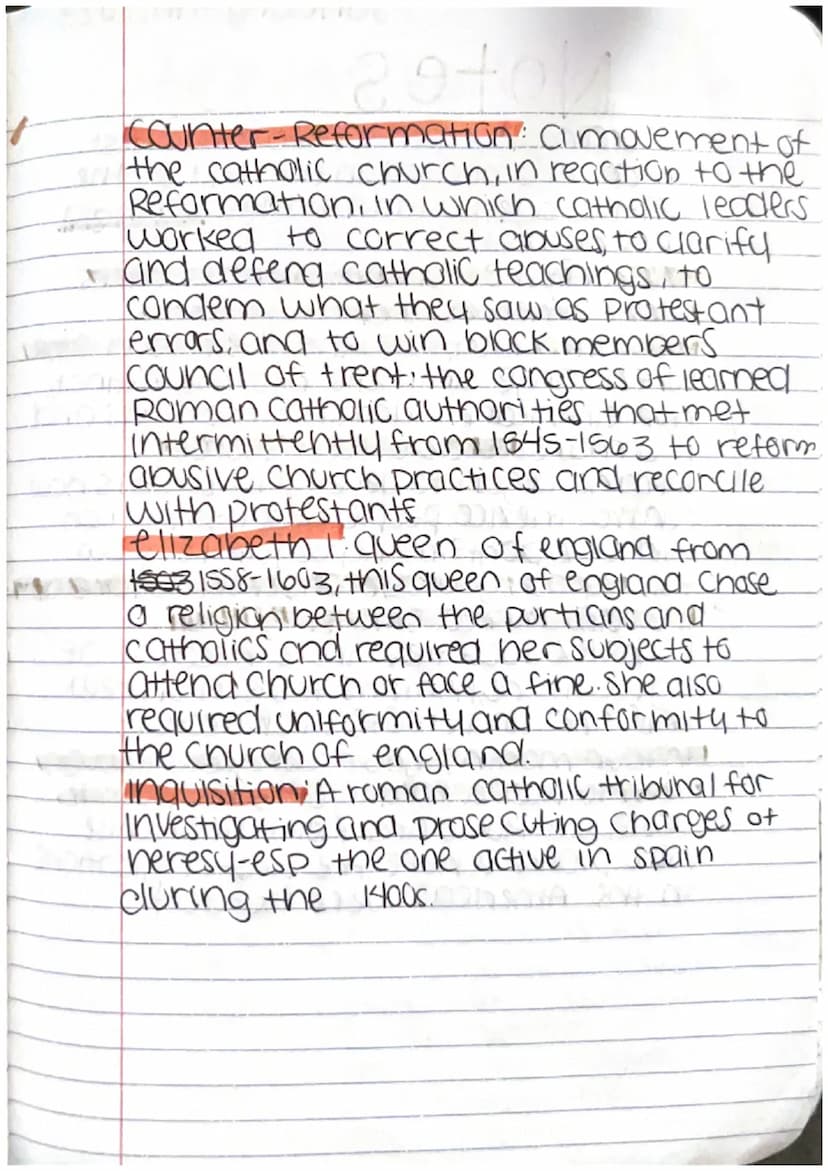 Notes
Counter-Reformation: a movement of
the catholic church, in reaction to the
Reformation, in which catholic leaders
worked to correct abuses, to clarify
and defend catholic teachings, to
condem what they saw as protestant
errors, and to win black members
council of trent: the congress of learned
Roman catholic authorities that met
intermittently from 1545-1563 to reform
abusive church practices and reconcile
with protestants
elizabeth I: queen of england from
1558-1603, this queen of england chose
a religion between the purtians and
catholics and required her subjects to
attend church or face a fine. She also
required uniformity and conformity to
the church of england.
inquisition: A roman catholic tribunal for
investigating and prosecuting charges of
heresy-esp the one active in spain
during the 1400s.